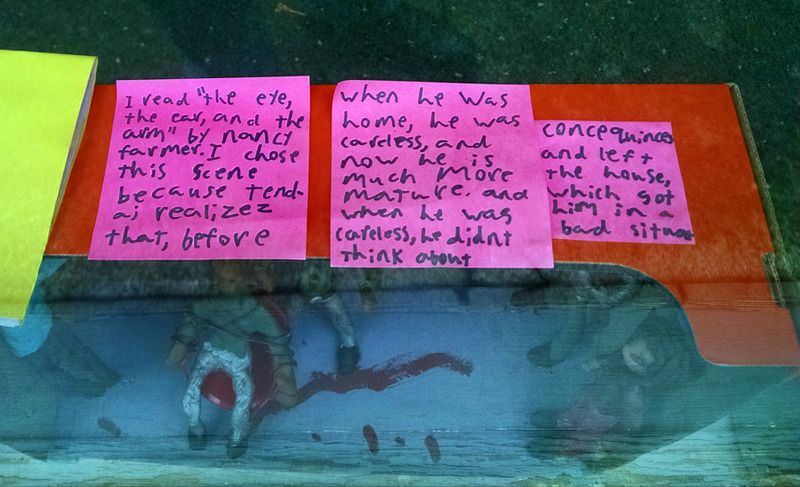 I read "the eye,
the ear, and the
arm" by nancy
farmer. I chose
this scene
because tend-
ai realizez
that, before
when he was
home, he was
careless, and
now he is
much more
mature. and
when he was
careless, he didnt
think about
concequinces
and left
the house,
which got
him in a
bad situa